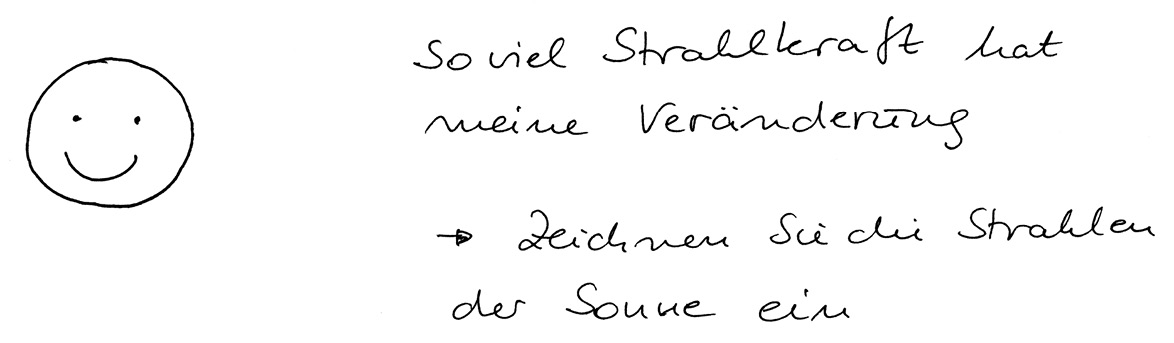 So viel Strahlkraft hat
meine Veränderung
→ Zeichnen Sie die Strahlen
der Sonne ein